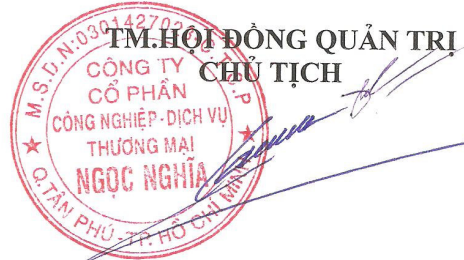 TM.HỘI ĐỒNG QUẢN TRỊ
CHỦ TỊCH
M.S.D.N:0301427028-C.T.C.P
CÔNG TY
CỔ PHẦN
CÔNG NGHIỆP-DỊCH VỤ
THƯƠNG MẠI
NGỌC NGHĨA
Q.TÂN PHÚ-TP.HỒ CHÍ MINH